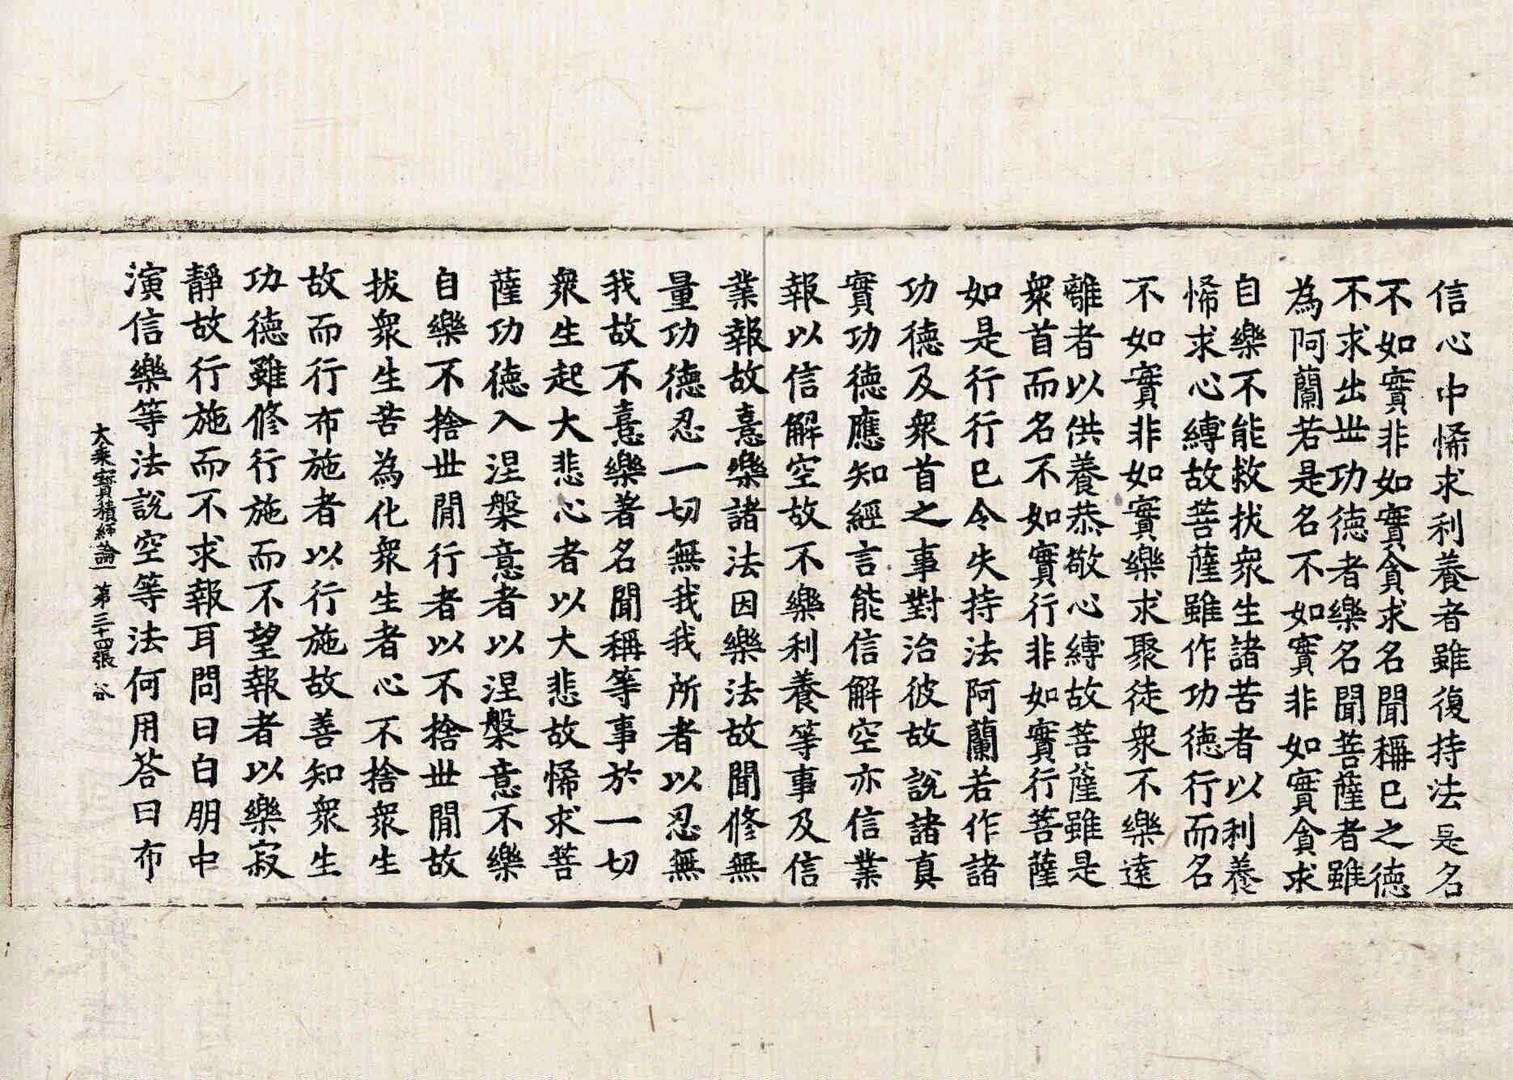 信心中悕求利養者雖復持法是名
不如實非如實貪求名聞稱已之德
不求出世功德者樂名聞菩薩者雖
為阿蘭若是名不如實非如實貪求
自樂不能救拔眾生諸苦者以利養
悕求心縛故菩薩雖作功德行而名
不如實非如實樂求聚徒衆不樂遠
離者以供養恭敬心縛故菩薩雖是
衆首而名不如實行非如實行菩薩
如是行行已令失持法阿蘭若作諸
功德及衆首之事對治彼故說諸真
實功德應知經言能信解空亦信業
報以信解空故不樂利養等事及信
業報故憙樂諸法因樂法故聞修無
量功德忍一切無我我所者以忍無
我故不憙樂著名聞稱等事於一切
衆生起大悲心者以大悲故悕求菩
薩功德入涅槃意者以涅槃意不樂
自樂不捨世間行者以不捨世間故
拔衆生苦為化衆生者心不捨衆生
故而行布施者以行施故善知衆生
功德雖修行施而不望報者以樂寂
靜故行施而不求報耳問曰白朋中
演信樂等法說空等法何用答曰布
大乘寶積經論 第三十四張 谷